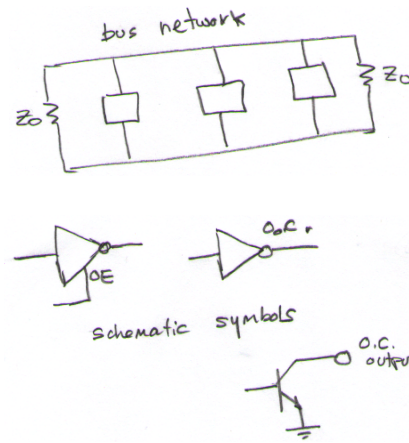 bus network
Zo
Zo
OE
O.C.
schematic symbols
O.C.
output